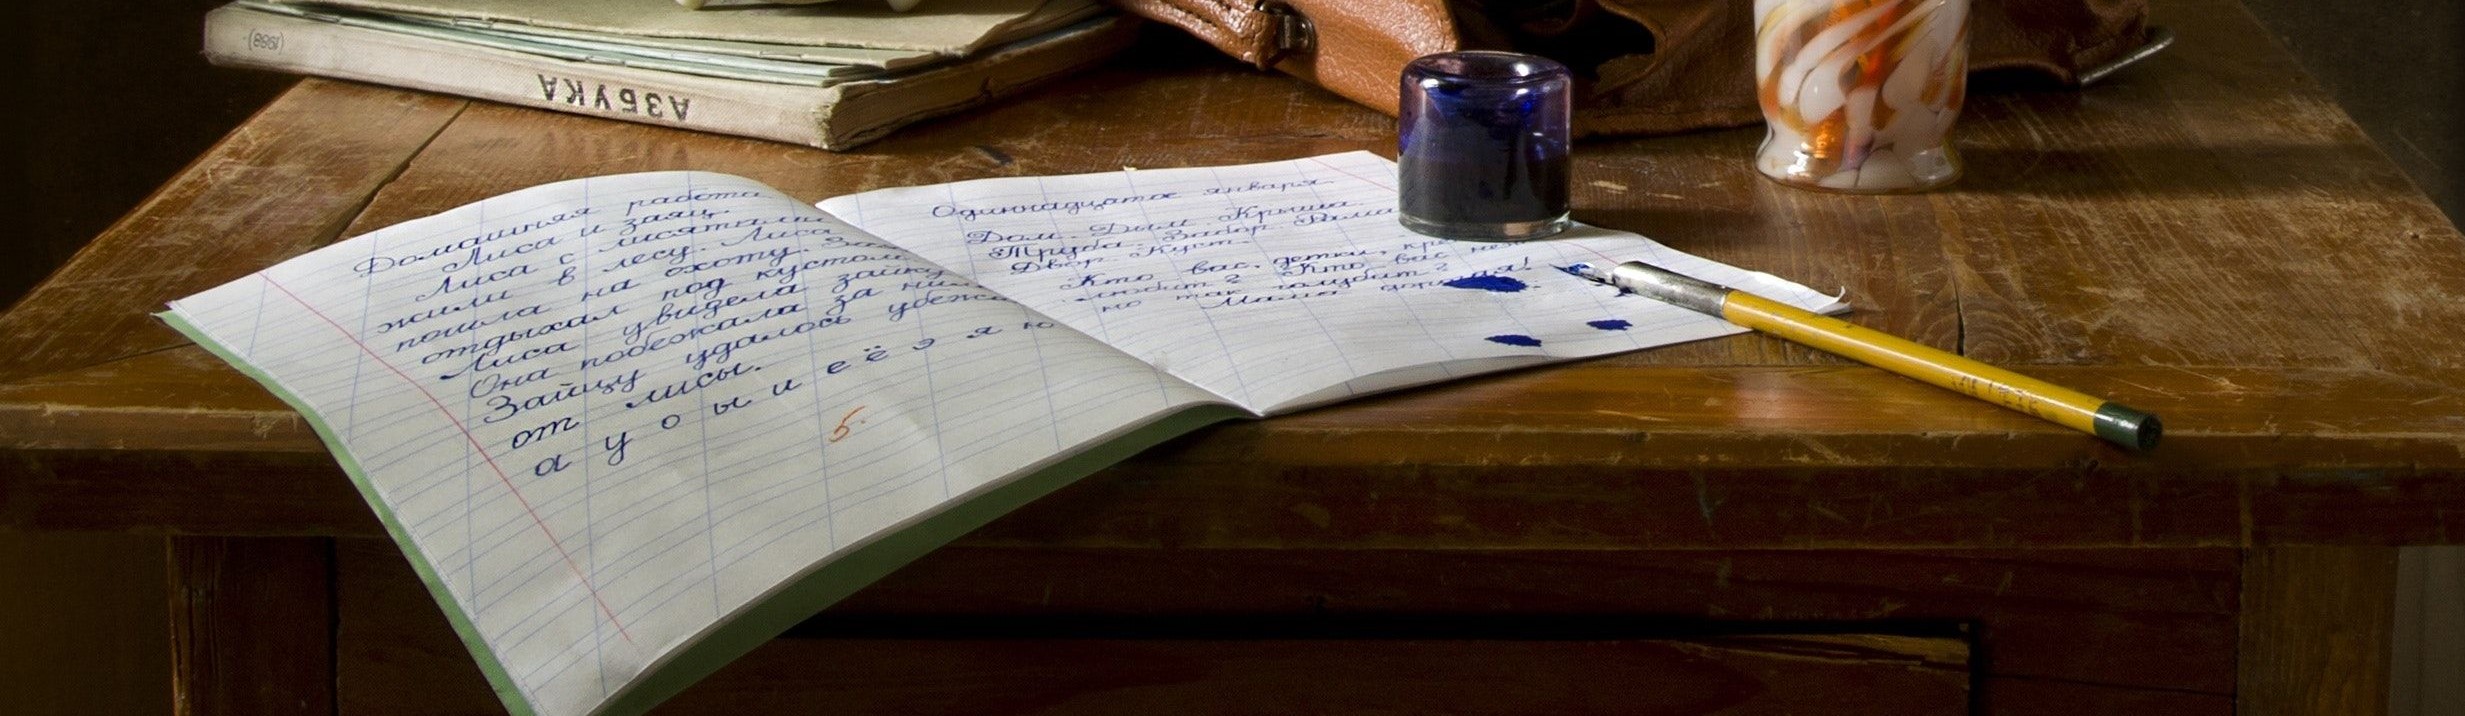 (1988)
АЗБУКА
Домашняя работа
Лиса и заяц.
Лиса с лисятами
жили в лесу. Лиса
пошла на охоту.
отдыхал под кустом.
Лиса увидела зайку
Она побежала за ним
Зайцу удалось
от лисы.
а у о ы и е ё э я ю
5.
Одиннадцатое января.
Дом. Дым. Крыша.
Труба. Забор. Рама
Двор. Куст.
Кто вас, детки,
любит? Кто вас
но так голубит?
Мама